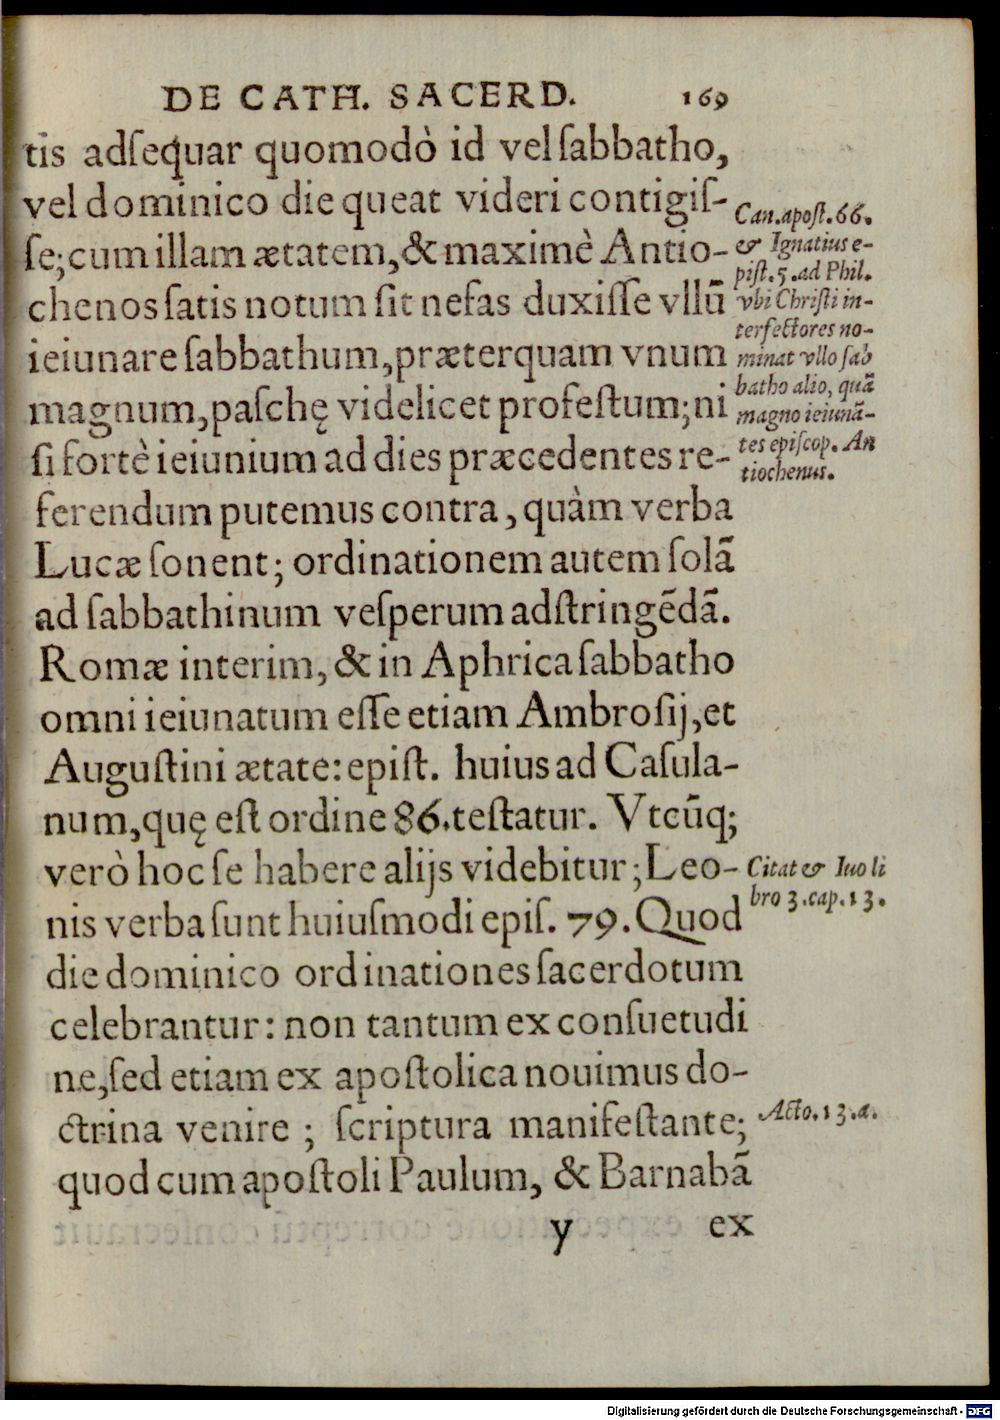 DE CATH. SACERD. 169
tis adſequar quomodò id vel ſabbatho,
vel dominico die queat videri contigiſ-
ſe; cum illam ætatem, & maximè Antio-
chenos ſatis notum ſit nefas duxiſſe vllũ
ieiunare ſabbathum, præterquam vnum
magnum, paſchę videlicet profeſtum; ni
ſi fortè ieiunium ad dies præcedentes re-
ferendum putemus contra, quàm verba
Lucæ ſonent; ordinationem autem ſolã
ad ſabbathinum veſperum adſtringẽdã.
Romæ interim, & in Aphrica ſabbatho
omni ieiunatum eſſe etiam Ambroſij, et
Auguſtini ætate: epiſt. huius ad Caſula-
num, quę eſt ordine 86. teſtatur. Vtcũq;
verò hoc ſe habere alijs videbitur; Leo-
nis verba ſunt huiuſmodi epiſ. 79. Quod
die dominico ordinationes ſacerdotum
celebrantur: non tantum ex conſuetudi
ne, ſed etiam ex apoſtolica nouimus do-
ctrina venire ; ſcriptura manifeſtante;
quod cum apoſtoli Paulum, & Barnabã
y ex
Can. apoſt. 66.
& Ignatius e-
piſt. 5. ad Phil.
vbi Chriſti in-
terfectores no-
minat vllo ſab
batho alio, quã
magno ieiunã-
tes epiſcop. An
tiochenus.
Citat & Iuo li
bro 3. cap. 13.
Acto. 13. a.
Digitalisierung gefördert durch die Deutsche Forschungsgemeinschaft - DFG